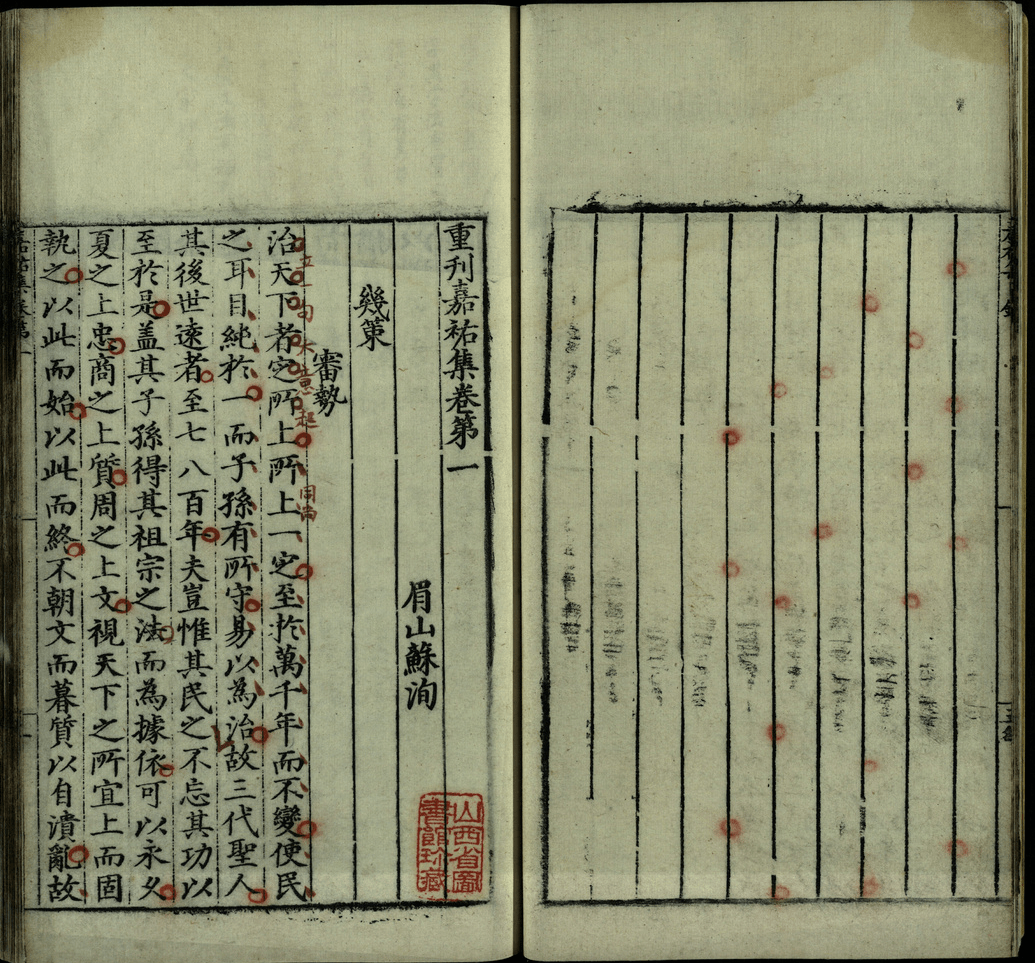 重刊嘉祐集卷第一
眉山蘇洵
幾策
審勢
治天下者定所上所上一定至於萬千年而不變使民
之耳目純於一而子孫有所守易以為治故三代聖人
其後世遠者至七八百年夫豈惟其民之不忘其功以
至於是盖其子孫得其祖宗之法而為據依可以永久
夏之上忠商之上質周之上文視天下之所宜上而固
執之以此而始以此而終不朝文而暮質以自潰亂故
山西省圖
書館珍藏